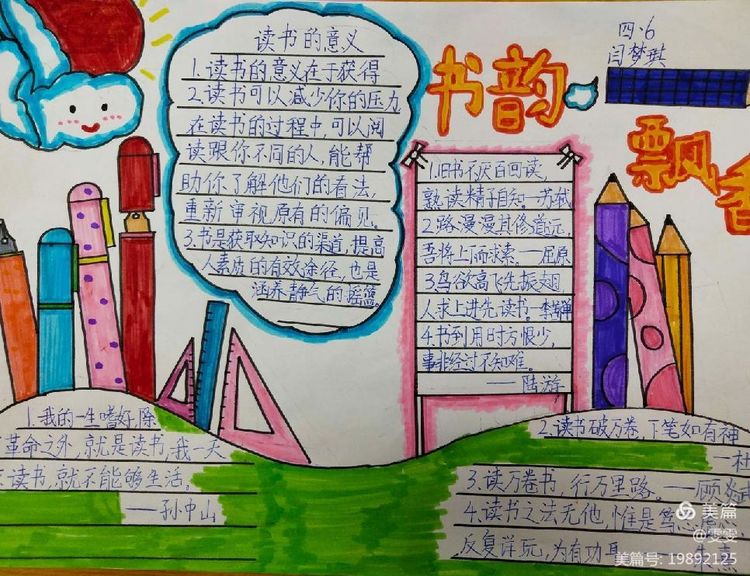 读书的意义
1.读书的意义在于获得
2.读书可以减少你的压力
在读书的过程中,可以阅
读跟你不同的人,能帮
助你了解他们的看法,
重新审视原有的偏见。
3.书是获取知识的渠道,提高
人素质的有效途径,也是
涵养静气的摇篮
书韵
飘香
四·6
闫梦琪
1.旧书不厌百回读,
熟读精子自知—苏轼
2.路漫漫其修道远,
吾将上而求索.—屈原
3.鸟欲高飞先振翅
人求上进先读书.李苦禅
4.书到用时方恨少,
事非经过不知难。
——陆游
1.我的一生嗜好,除
革命之外,就是读书,我一天
读书,就不能够生活。
——孙中山
2.读书破万卷,下笔如有神
3.读万卷书,行万里路。—顾炎武
4.读书之法无他,惟是笃
反复详玩,为有功耳
美篇
@雯雯
美篇号: 19892125